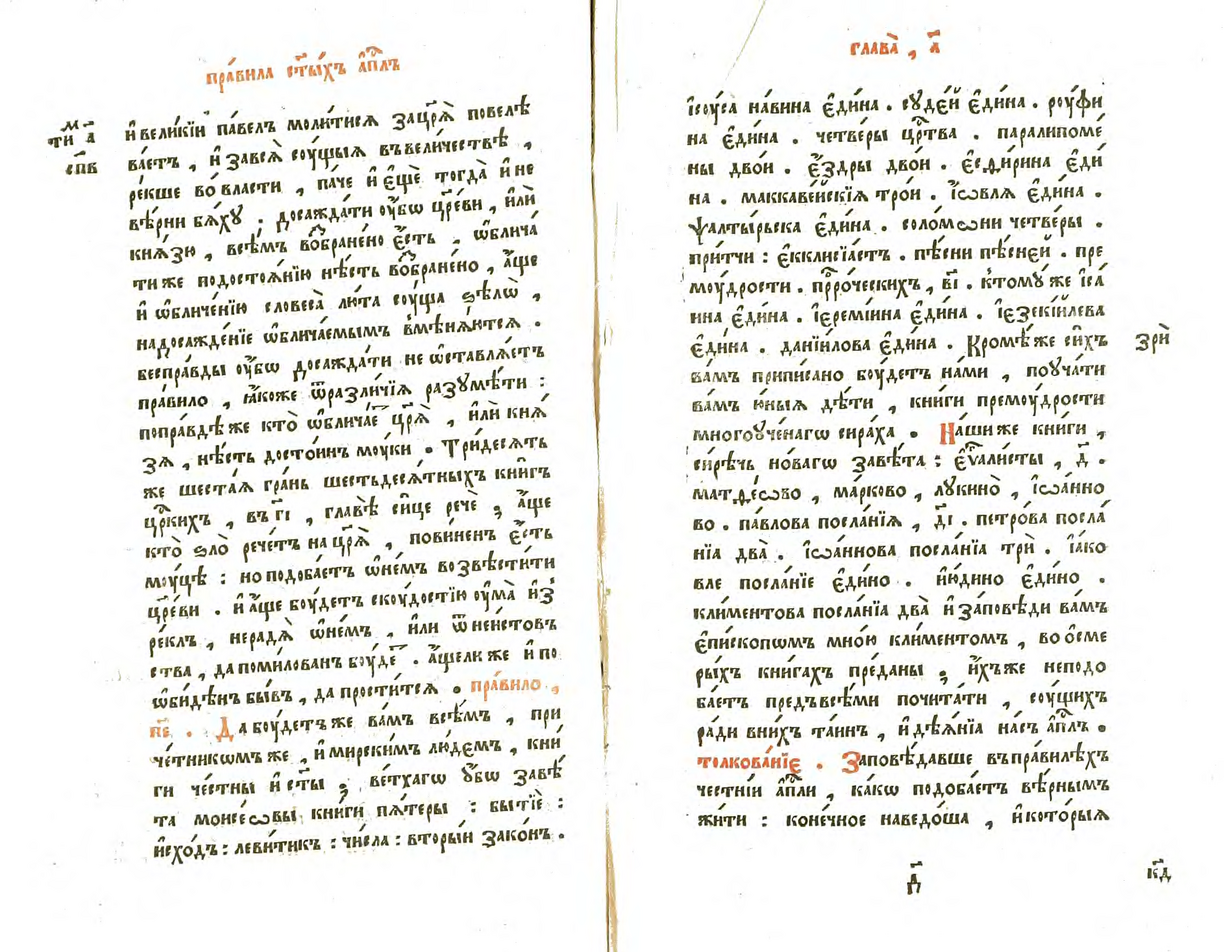 пра́вила ст҃ы́хъ а҆пⷭ҇лъ
м҃
ти а҃
сп҃в
и҆ вели́кїи па́велъ моли́тисѧ зацр҃ѧ̀ повелѣ
ва́етъ , и҆ завсѧ̀ соу́щыѧ въвели́чествѣ ,
ре́кше во́ вла́сти , па́че и҆ є҆щѐ тогда̀ и҆ не
вѣ́рни бѧ́хꙋ . досажда́ти оу҆́бо цр҃е́ви , и҆лѝ
кнѧ́зю , всѣ́мъ во́збране́но є҆́сть . ѡ҆блича́
ти же подостоѧ́нїю нѣ́сть во́збране́но , а҆́ще
и҆ ѡ҆бличе́нїю словеса̀ лю́та соу́ща ѕѣлѡ̀ ,
надосажде́нїе ѡ҆блича́емымъ вмѣнѧ́ютсѧ .
бесправды оу҆́бо досажда́ти не ѡ҆ставлѧ́етъ
пра́вило , ꙗ҆́коже ѿразли́чїѧ разꙋмѣ́ти :
попра́вдѣ же кто̀ ѡ҆блича́еⷮ цр҃ѧ̀ , и҆лѝ кнѧ́
зѧ , нѣ́сть досто́инъ моу́ки . Три́десѧть
же шеста́ѧ гра́нь шестьдесѧ́тныхъ кни́гъ
цр҃кихъ , въ г҃і , главѣ̀ си́це речѐ ; а҆́ще
кто̀ ѕло̀ рече́тъ на цр҃ѧ̀ , пови́ненъ є҆́сть
моу́цѣ : но подоба́етъ ѡ҆не́мъ возвѣсти́ти
цр҃е́ви . и҆ а҆́ще боу́детъ скоу́достїю оу҆ма̀ и҆з̾
ре́клъ , нерадѧ̀ ѡ҆не́мъ , и҆лѝ ѿ неи́стовъ
ства , да поми́лованъ боу́деⷮ . а҆́щели же и҆ по
ѡ҆би́дѣнъ бы́въ , да прости́тсѧ . пра́вило ,
п҃е . Да боу́детъ же ва́мъ всѣ́мъ , при
че́тникѡмъ же , и҆ мирски́мъ лю́демъ , кни́
ги че́стны и҆ ст҃ы ; ве́тхагѡ оу҆́бѡ завѣ́
та моисе́ѡвы кни́ги пѧ́теры : бытїѐ :
и҆схо́дъ : леви́тикъ : чи́сла : вторы́и зако́нъ .
глава̀ , а҃
і҆соу́са на́вина є҆ди́на . соуде́й є҆ди́на . роу́фи
на є҆ди́на . четве́ры црⷭ҇тва . паралипоме́
ны дво́и . є҆́здры дво́и . є҆сѳи́рина є҆ди́
на . маккаве́йскїѧ тро́и . і҆́ѡвлѧ є҆ди́на .
ѱалты́рьска є҆ди́на . соломѡни четве́ры .
при́тчи : є҆кклисїа́стъ . пѣ́сни пѣ́сней . пре
моу́дрости . прⷪ҇ро́ческихъ , в҃і . ктомꙋ́ же і҆са́
ина є҆ди́на . і҆еремі́ина є҆ди́на . і҆езекі́илева
є҆ди́на . данїи́лова є҆ди́на . Кромѣ́ же си́хъ
зрѝ
ва́мъ припи́сано боу́детъ на́ми , поуча́ти
ва́мъ ю҆́ныѧ дѣ́ти , кни́ги премоу́дрости
многоꙋ́ченагѡ сира́ха . На́ши же кни́ги ,
си́рѣчь но́вагѡ завѣ́та : є҆ѵⷢ҇али́сты , д҃ .
матѳе́ѡво , ма́рково , лꙋкино̀ , і҆ѡа́нно
во . па́влова посла́нїѧ , д҃і . петро́ва посла́
нїа два̀ . і҆ѡа́ннова посла́нїа трѝ . і҆а́ко
вле посла́нїе є҆ди́но . и҆ю́дино є҆ди́но .
кли́ментова посла́нїа два̀ и҆ за́повѣди ва́мъ
є҆пи́скопѡмъ мно́ю кли́ментомъ , во ѻ҆сме
ры́хъ кни́гахъ пре́даны ; и҆́хъже неподо
ба́етъ предъвсѣ́ми почита́ти , соу́щихъ
ра́ди вни́хъ та́инъ , и҆ дѣѧ́нїа на́съ а҆пⷭ҇лъ .
толкова́нїе . Заповѣ́давше въпра́вилѣхъ
че́стнїи а҆пⷭ҇ли , ка́кѡ подоба́етъ вѣ́рнымъ
жи́ти : коне́чное наведо́ша , и҆ кото́рыѧ
д҃
к҃д